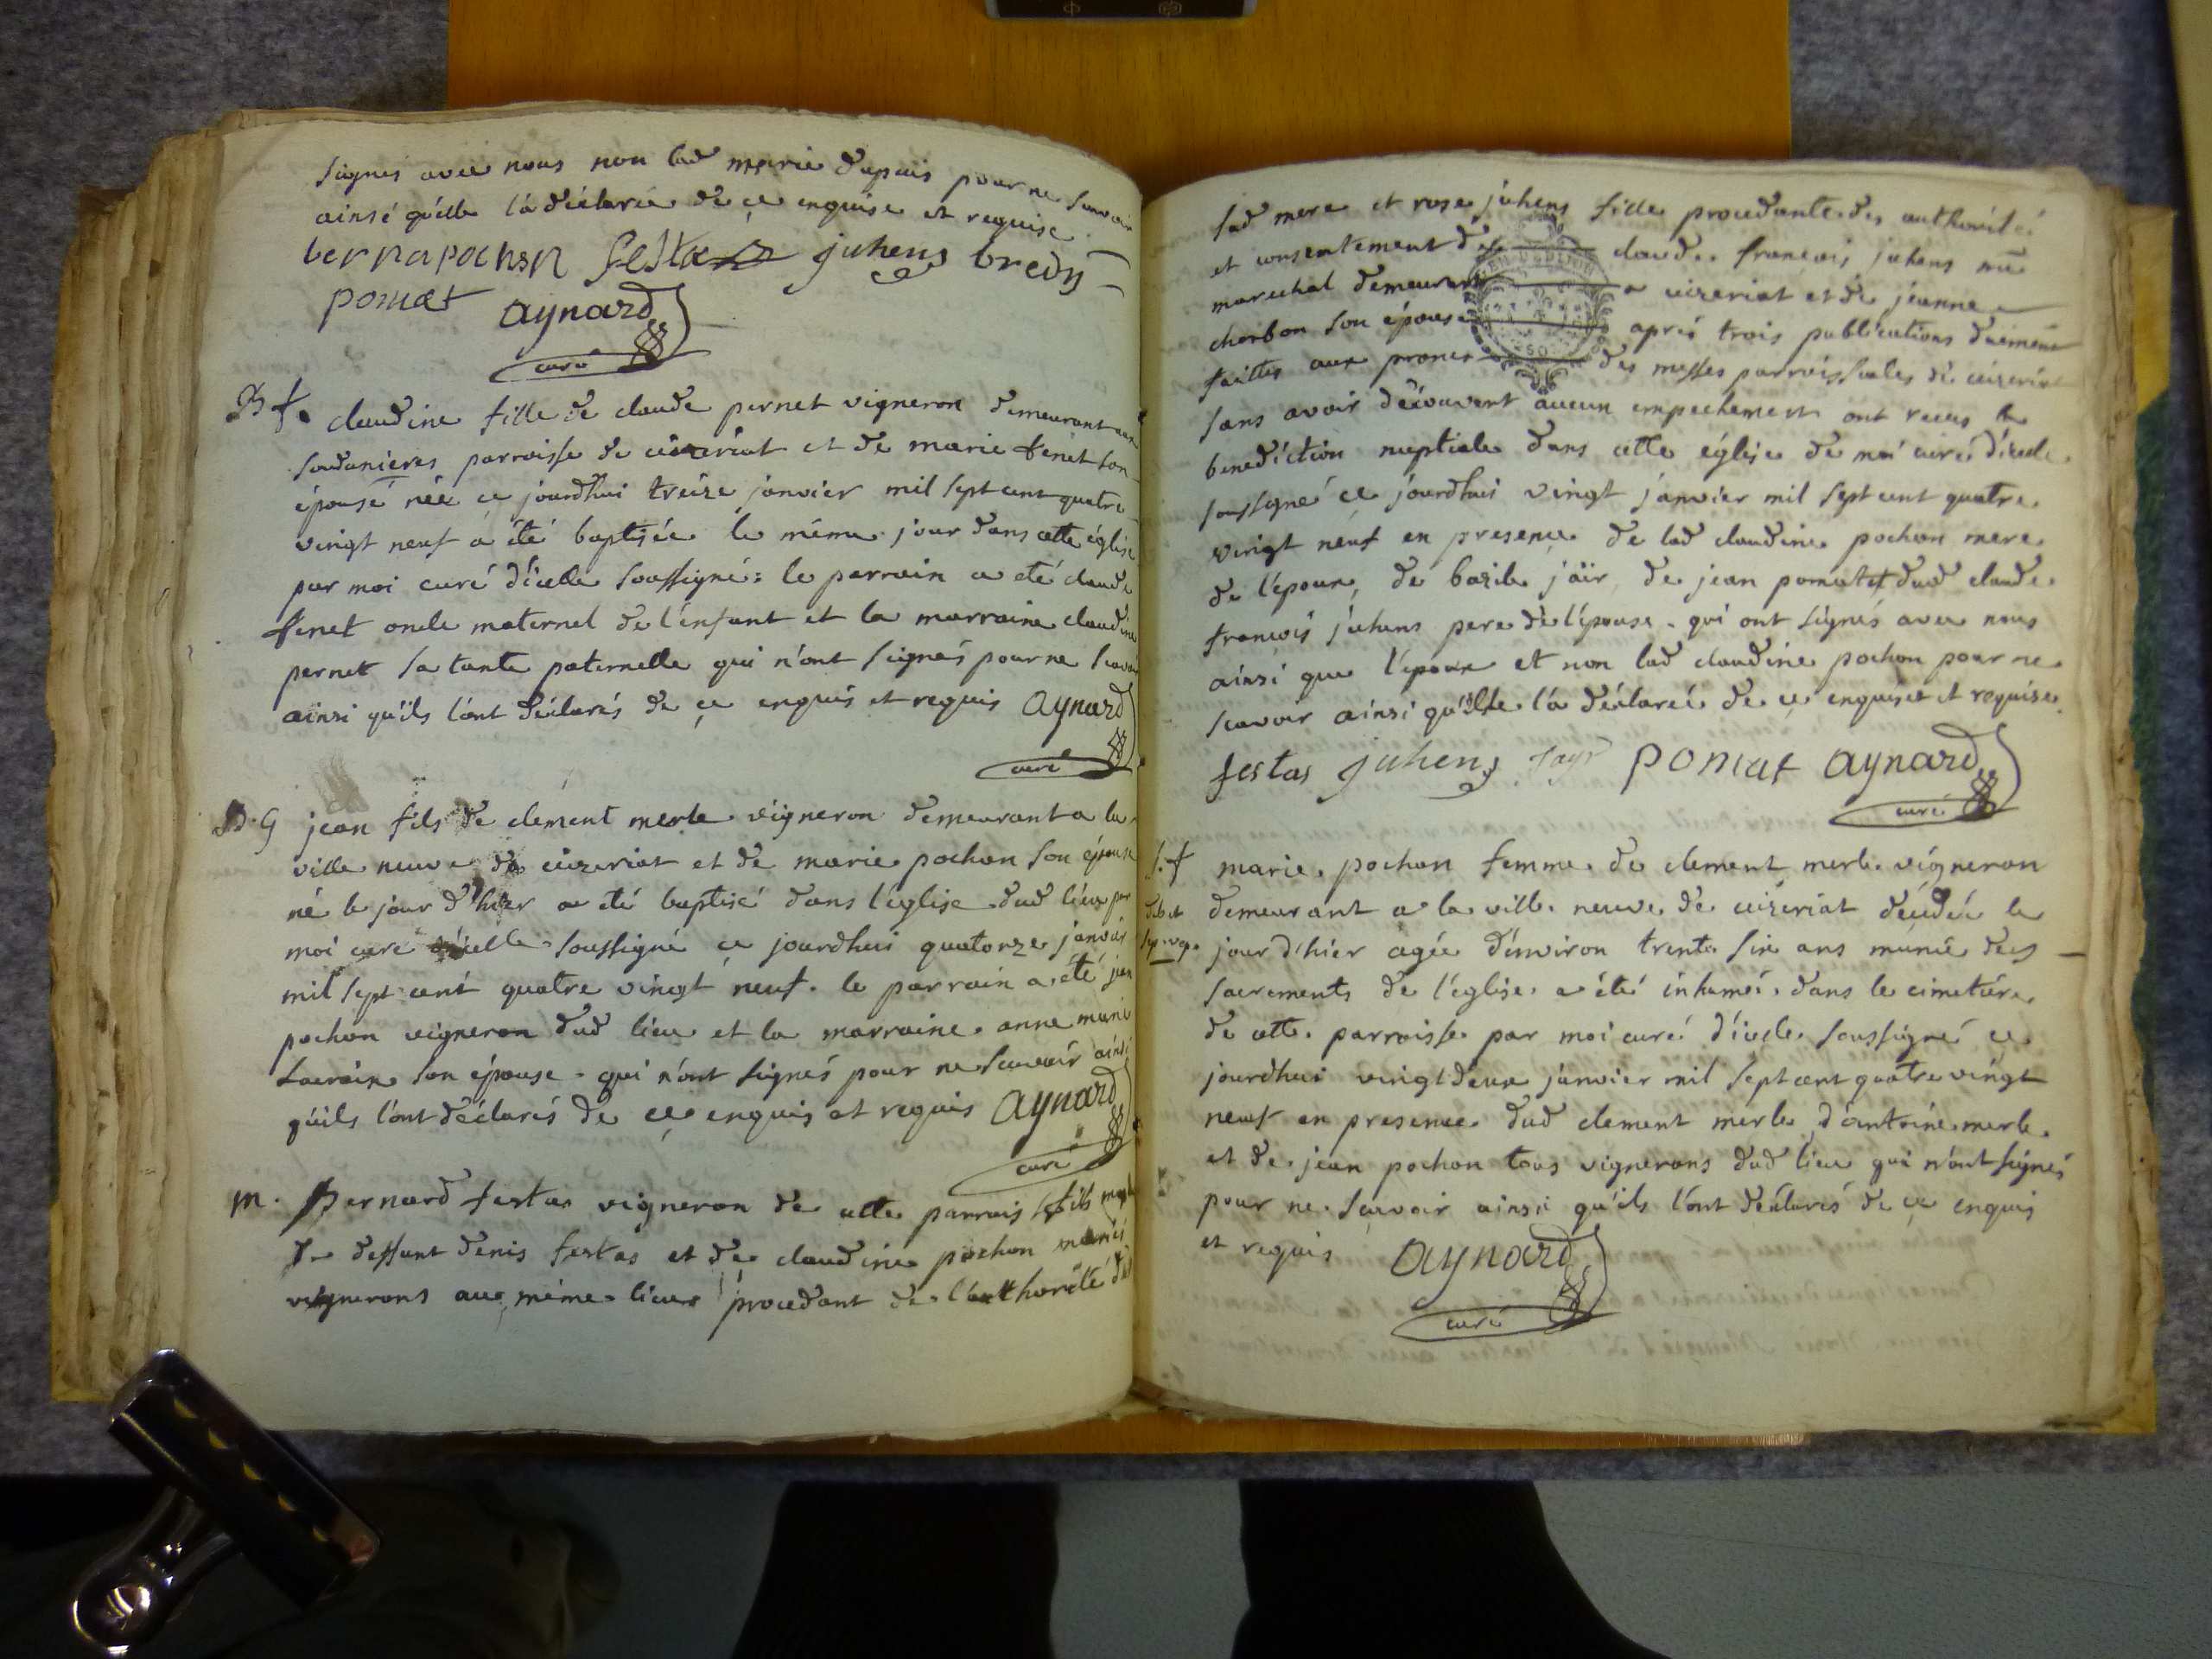 signés avec nous non lad marie dupuis pour ne scavoir
ainsi quelle la déclarée de ce enquise et requise
bernapochon festas juhens bredy
pomat aynard
curé
B f. claudine fille de claude pernet vigneron demeurant aux
soudanieres parroisse de ceizeriat et de marie fenet son
épouse née ce jourdhui treize janvier mil sept cent quatre
vingt neuf a été baptisée le même jour dans cette église
par moi curé d'icelle soussigné: le parrain a eté claude
fenet oncle maternel de l'enfant et la marraine claudine
pernet sa tante paternelle qui n'ont signés pour ne scavoir
ainsi qu'ils l'ont déclarés de ce enquis et requis aynard
curé
B. G jean fils de clement merle vigneron demeurant a la
ville neuve de ceizeriat et de marie pochon son épouse
né le jour d'hier a eté baptisé dans l'église dud lieu par
moi curé d'icelle soussigné ce jourdhui quatorze janvier
mil sept cent quatre vingt neuf. le parrain a été jean
pochon vigneron dud lieu et la marraine anne marie
son épouse. qui n'ont signés pour ne scavoir ainsi
qu'ils l'ont déclarés de ce enquis et requis aynard
curé
m. Bernard festas vigneron de cette parroisse fils
de deffunt denis festas et de claudine pochon mariés
vignerons au même lieu procedant de l'authorité de
lad mere et rose juhens fille procedante des authorités
et consentement de claude françois juhens me
marechal demeurant a ceizeriat et de jeanne
charbon son épouse aprés trois publications duement
faittes aux prones des messes parroissiales de ceizeriat
sans avoir découvert aucun empechement ont recus la
benediction nuptiale dans cette église de moi curé d'icelle
soussigné ce jourdhui vingt janvier mil sept cent quatre
vingt neuf en presence de lad claudine pochon mere
de l'époux, de bazile jaÿr de jean pomat et dud claude
françois juhens pere de l'épouse. qui ont signés avec nous
ainsi que l'époux et non lad claudine pochon pour ne
scavoir ainsi qu'elle l'a déclarée de ce enquise et requise.
festas juhens jayr pomat aynard
curé
S. f marie pochon femme de clement merle vigneron
demeurant a la ville neuve de ceizeriat décédée le
jour d'hier agée d'environ trente six ans munie des
sacrements de l'église a été inhumée dans le cimetiére
de cette parroisse par moi curé d'icelle soussigné ce
jourdhui vingt deux janvier mil sept cent quatre vingt
neuf en presence dud clement merle d'antoine merle
et de jean pochon tous vignerons dud lieu qui n'ont signés
pour ne scavoir ainsi qu'ils l'ont déclarés de ce enquis
et requis aynard
curé